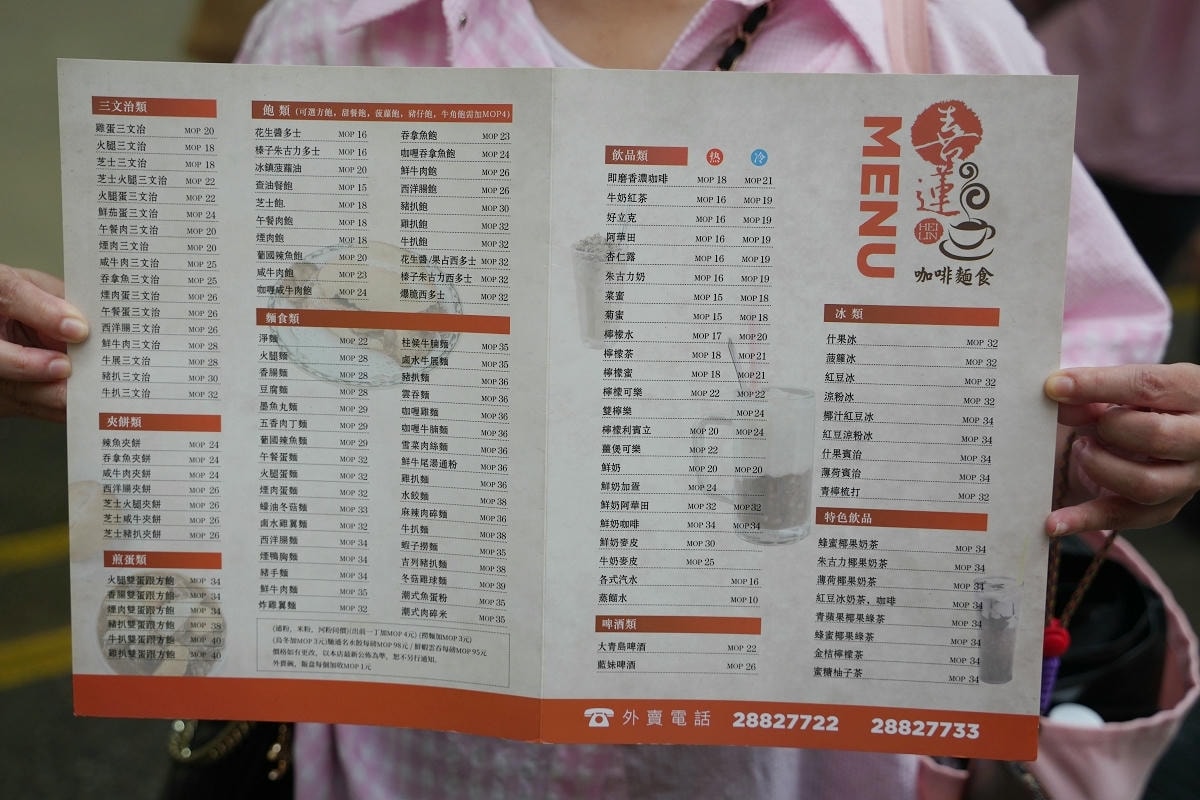 三文治類
雞蛋三文冶 MOP 20
火腿三文冶 MOP 18
芝士三文冶 MOP 18
芝士火腿三文冶 MOP 22
火腿蛋三文冶 MOP 22
鮮茄蛋三文冶 MOP 24
午餐肉三文冶 MOP 20
煙肉三文冶 MOP 20
咸牛肉三文冶 MOP 25
吞拿魚三文冶 MOP 25
煙肉蛋三文冶 MOP 26
午餐蛋三文冶 MOP 26
西洋腸三文冶 MOP 28
鮮牛肉三文冶 MOP 28
牛展三文冶 MOP 28
豬扒三文冶 MOP 30
牛扒三文冶 MOP 32
夾餅類
辣魚夾餅 MOP 24
吞拿魚夾餅 MOP 24
咸牛肉夾餅 MOP 24
西洋腸夾餅 MOP 26
芝士火腿夾餅 MOP 26
芝士咸牛夾餅 MOP 26
芝士豬扒夾餅 MOP 26
煎蛋類
火腿雙蛋跟方飽 MOP 34
香腸雙蛋跟方飽 MOP 34
煙肉雙蛋跟方飽 MOP 34
豬扒雙蛋跟方飽 MOP 38
牛扒雙蛋跟方飽 MOP 40
雞扒雙蛋跟方飽 MOP 40
飽 類 (可選方飽，甜餐飽，菠蘿飽，豬仔飽，牛角飽需加MOP4)
花生醬多士 MOP 16
榛子朱古力多士 MOP 16
冰鎮菠蘿油 MOP 20
查油餐飽 MOP 15
芝士飽 MOP 18
午餐肉飽 MOP 18
煙肉飽 MOP 18
葡國辣魚飽 MOP 20
咸牛肉飽 MOP 23
咖喱咸牛肉飽 MOP 24
吞拿魚飽 MOP 23
咖喱吞拿魚飽 MOP 24
鮮牛肉飽 MOP 26
西洋腸飽 MOP 26
豬扒飽 MOP 30
雞扒飽 MOP 32
牛扒飽 MOP 32
花生醬/果占西多士 MOP 32
榛子朱古力西多士 MOP 32
爆脆西多士 MOP 32
麵食類
淨麵 MOP 22
火腿麵 MOP 28
香腸麵 MOP 28
豆腐麵 MOP 28
墨魚丸麵 MOP 29
五香肉丁麵 MOP 29
葡國辣魚麵 MOP 29
午餐蛋麵 MOP 32
火腿蛋麵 MOP 32
煙肉蛋麵 MOP 32
蠔油冬菇麵 MOP 33
鹵水雞翼麵 MOP 32
西洋腸麵 MOP 34
煙鴨胸麵 MOP 34
豬手麵 MOP 34
鮮牛肉麵 MOP 35
炸雞翼麵 MOP 32
柱侯牛腩麵 MOP 35
鹵水牛展麵 MOP 35
豬扒麵 MOP 36
雲吞麵 MOP 36
咖喱雞麵 MOP 36
咖喱牛腩麵 MOP 36
雪菜肉絲麵 MOP 36
鮮牛尾湯通粉 MOP 36
雞扒麵 MOP 36
水餃麵 MOP 38
麻辣肉碎麵 MOP 36
牛扒麵 MOP 38
蝦子撈麵 MOP 35
吉列豬扒麵 MOP 38
冬菇雞球麵 MOP 39
潮式魚蛋粉 MOP 35
潮式肉碎米 MOP 35
(通粉，米粉，河粉同價)(出前一丁加MOP 4元) (撈麵加MOP 3元)
(烏冬加MOP 3元)馳通名水餃每磅MOP 98元 / 鮮蝦雲吞每磅MOP 95元
價格如有更改，以本店最新公佈為準，恕不另行通知。
外賣碗，飯盒每個加收MOP 1元
飲品類 热 冷
即磨香濃咖啡 MOP 18 MOP 21
牛奶紅茶 MOP 16 MOP 19
好立克 MOP 16 MOP 19
阿華田 MOP 16 MOP 19
杏仁露 MOP 16 MOP 19
朱古力奶 MOP 16 MOP 19
菜蜜 MOP 15 MOP 18
菊蜜 MOP 15 MOP 18
檸檬水 MOP 17 MOP 20
檸檬茶 MOP 18 MOP 21
檸檬蜜 MOP 18 MOP 21
檸檬可樂 MOP 22 MOP 22
雙檸樂 MOP 24
檸檬利賓立 MOP 20 MOP 24
薑煲可樂 MOP 22
鮮奶 MOP 20 MOP 20
鮮奶加蛋 MOP 24
鮮奶阿華田 MOP 32 MOP 32
鮮奶咖啡 MOP 34 MOP 34
鮮奶麥皮 MOP 30
牛奶麥皮 MOP 25
各式汽水 MOP 16
蒸餾水 MOP 10
啤酒類
大青島啤酒 MOP 22
藍妹啤酒 MOP 26
MENU
喜蓮
HEI LIN
咖啡麵食
冰 類
什果冰 MOP 32
菠蘿冰 MOP 32
紅豆冰 MOP 32
涼粉冰 MOP 32
椰汁紅豆冰 MOP 34
紅豆涼粉冰 MOP 34
什果賓治 MOP 34
薄荷賓治 MOP 34
青檸梳打 MOP 32
特色飲品
蜂蜜椰果奶茶 MOP 34
朱古力椰果奶茶 MOP 34
薄荷椰果奶茶 MOP 34
紅豆冰奶茶、咖啡 MOP 34
青蘋果椰果綠茶 MOP 34
蜂蜜椰果綠茶 MOP 34
金桔檸檬茶 MOP 34
蜜糖柚子茶 MOP 34
外賣電話 28827722 28827733